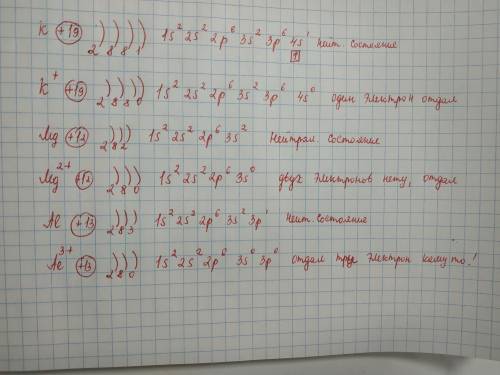 K +19 ) ) ) ) 2 8 8 1 1s² 2s² 2p⁶ 3s² 3p⁶ 4s¹ нейт. состояние
K⁺ +19 ) ) ) ) 2 8 8 0 1s² 2s² 2p⁶ 3s² 3p⁶ 4s⁰ один электрон отдал
Mg +12 ) ) ) 2 8 2 1s² 2s² 2p⁶ 3s² Нейтрал. состояние
Mg²⁺ +12 ) ) ) 2 8 0 1s² 2s² 2p⁶ 3s⁰ двух электронов нету, отдал
Al +13 ) ) ) 2 8 3 1s² 2s² 2p⁶ 3s² 3p¹ нейт. состояние
Al³⁺ +13 ) ) ) 2 8 0 1s² 2s² 2p⁶ 3s⁰ 3p⁰ отдал три электрон кому то!